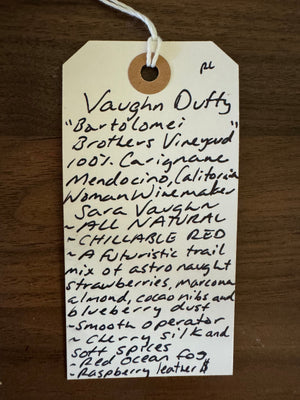 RL
Vaughn Duffy
"Bartolomei
Brothers Vineyard"
100% Carignane
Mendocino, California
Woman Winemaker
Sara Vaughn
~ALL NATURAL
-CHILLABLE RED
~A futuristic trail
mix of astronaught
strawberries, marcona
almond, cocao nibs and
blueberry dust
-smooth operator
~ Cherry silk and
soft spices
-Red Ocean Fog
-Raspberry leather $